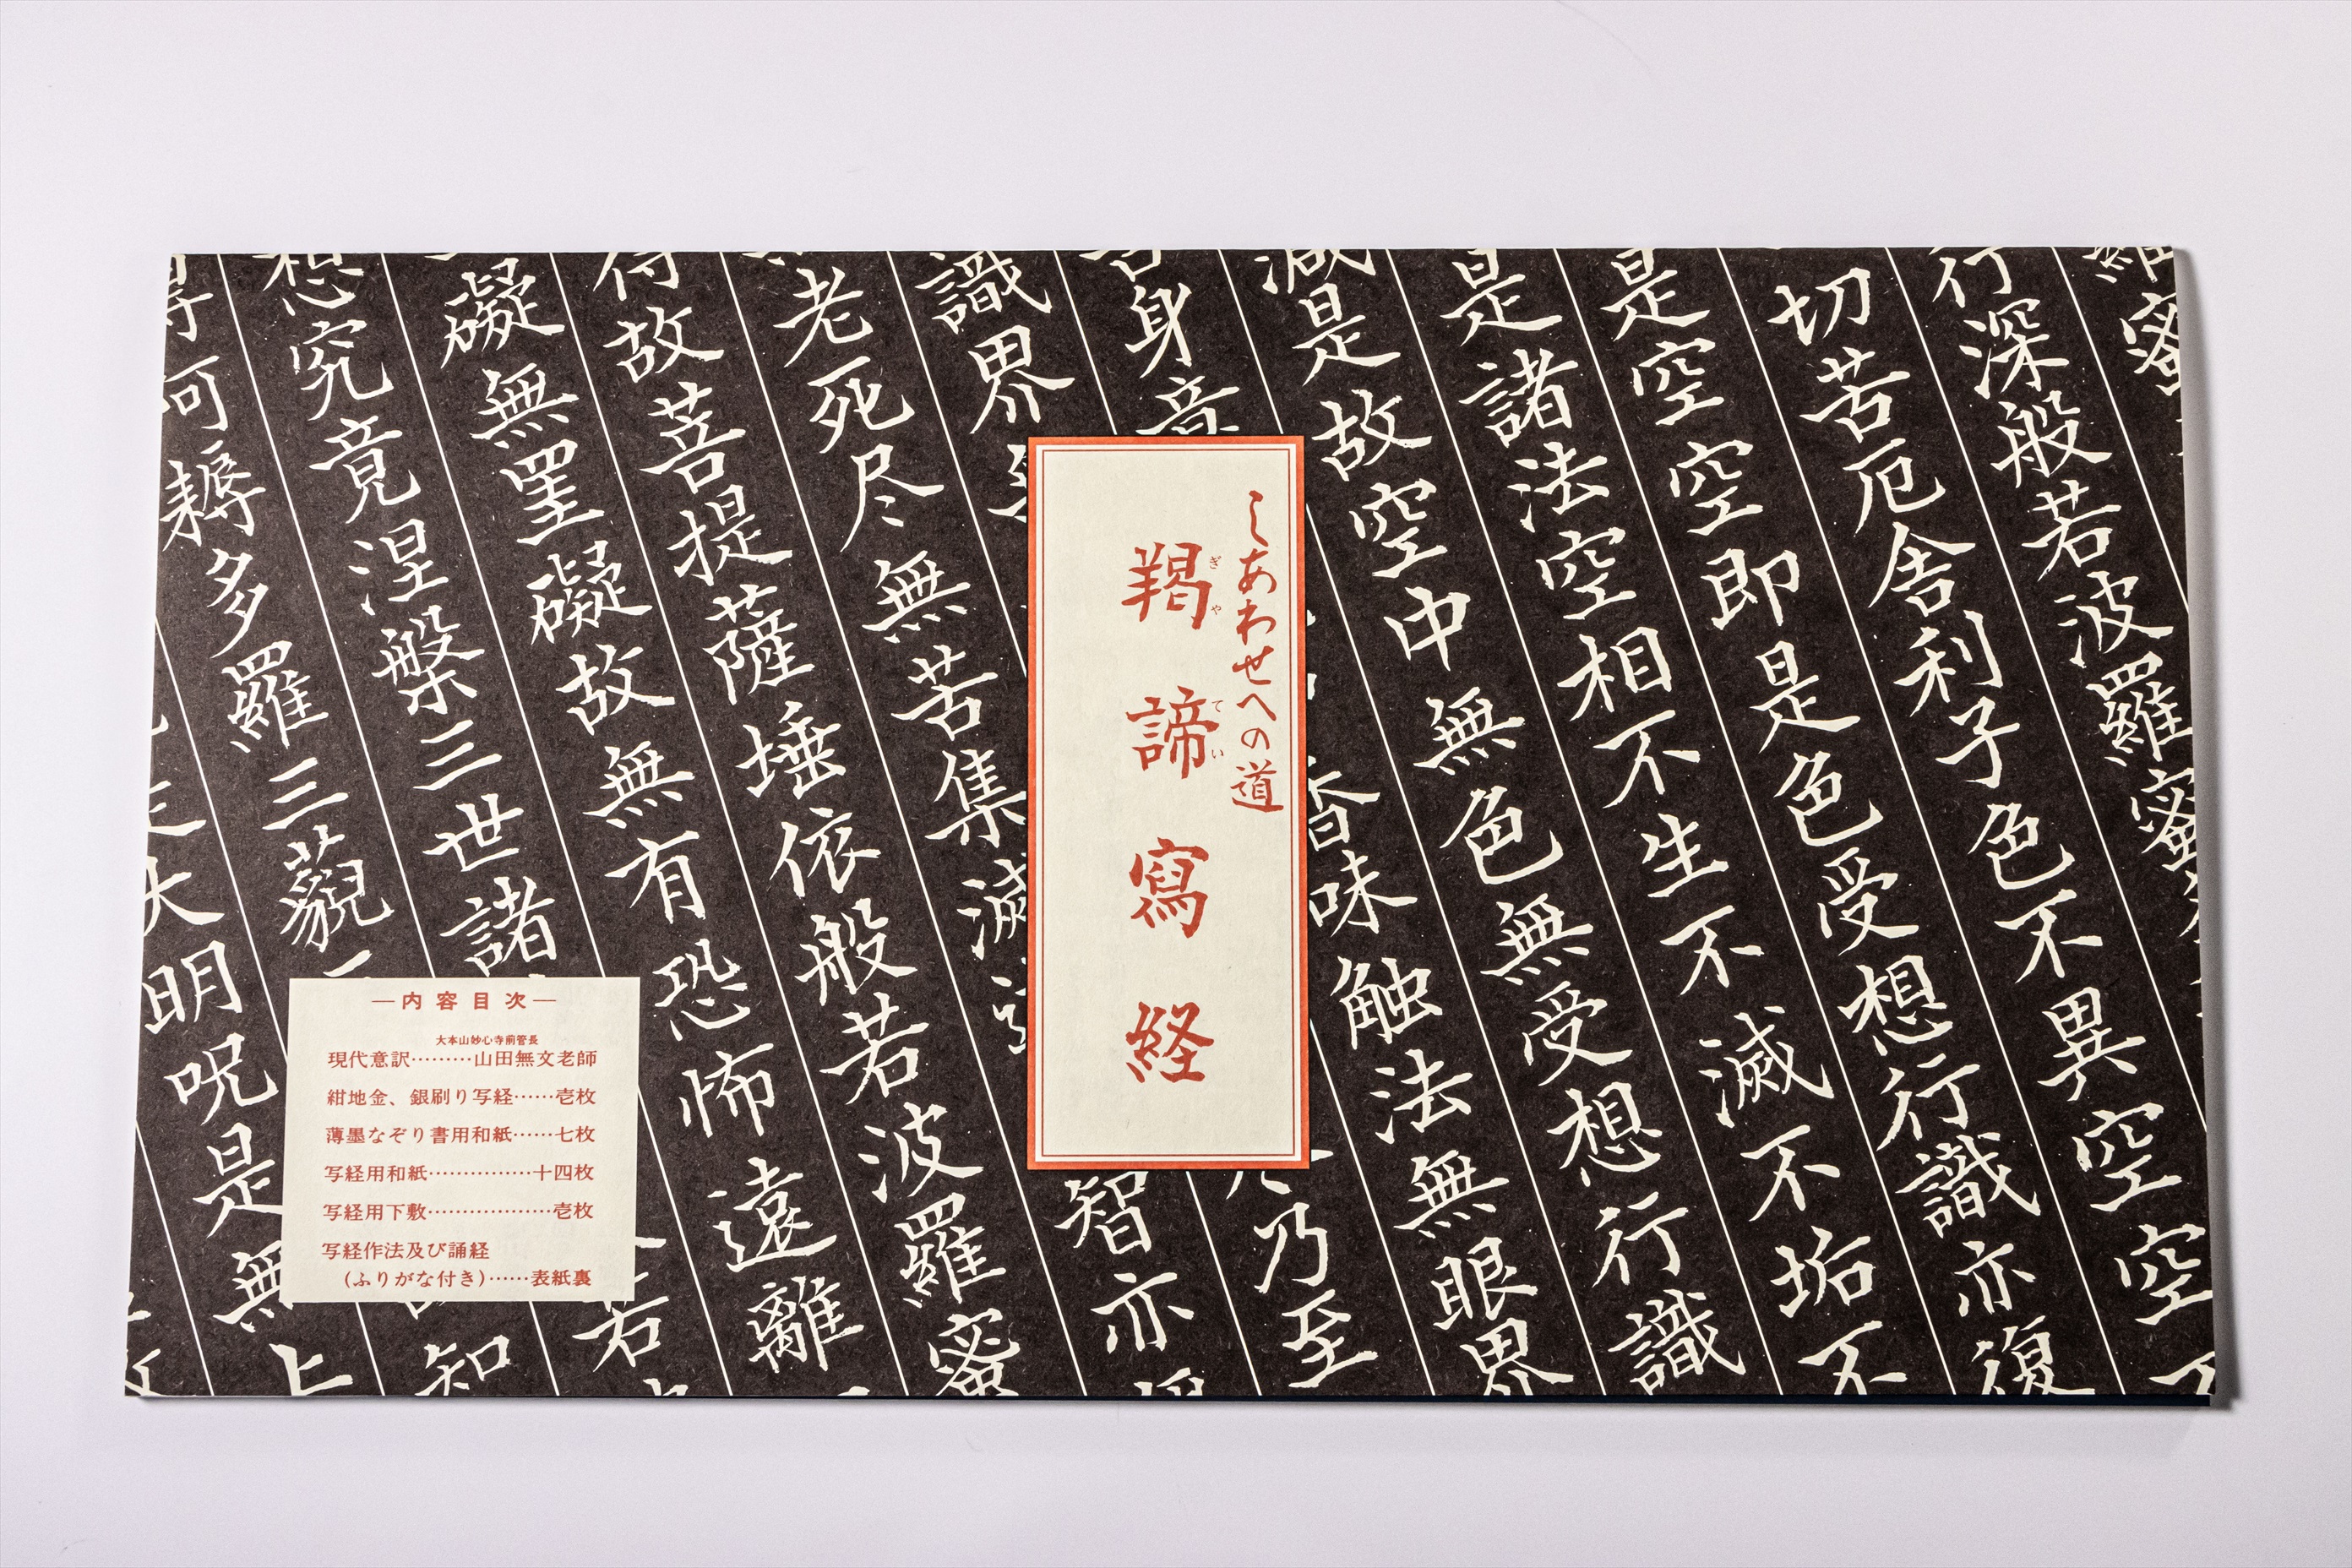 羅蜜
行深般若波羅蜜
切苦厄舎利子色不異空空不
是空空即是色受想行識亦復
是諸法空相不生不滅不垢不
是故空中無色無受想行識
身意
香味触法無眼界
識界
乃至
老死尽無苦集滅
智亦
得故菩提薩埵依般若波羅蜜
礙無罣礙故無有恐怖遠離
想究竟涅槃三世諸
若
得阿耨多羅三藐三
知
大明呪是無上
しあわせへの道
羯諦寫経
ぎやてい
―内容目次―
大本山妙心寺前管長
現代意訳………山田無文老師
紺地金、銀刷り写経……壱枚
薄墨なぞり書用和紙……七枚
写経用和紙……………十四枚
写経用下敷………………壱枚
写経作法及び誦経
(ふりがな付き)……表紙裏